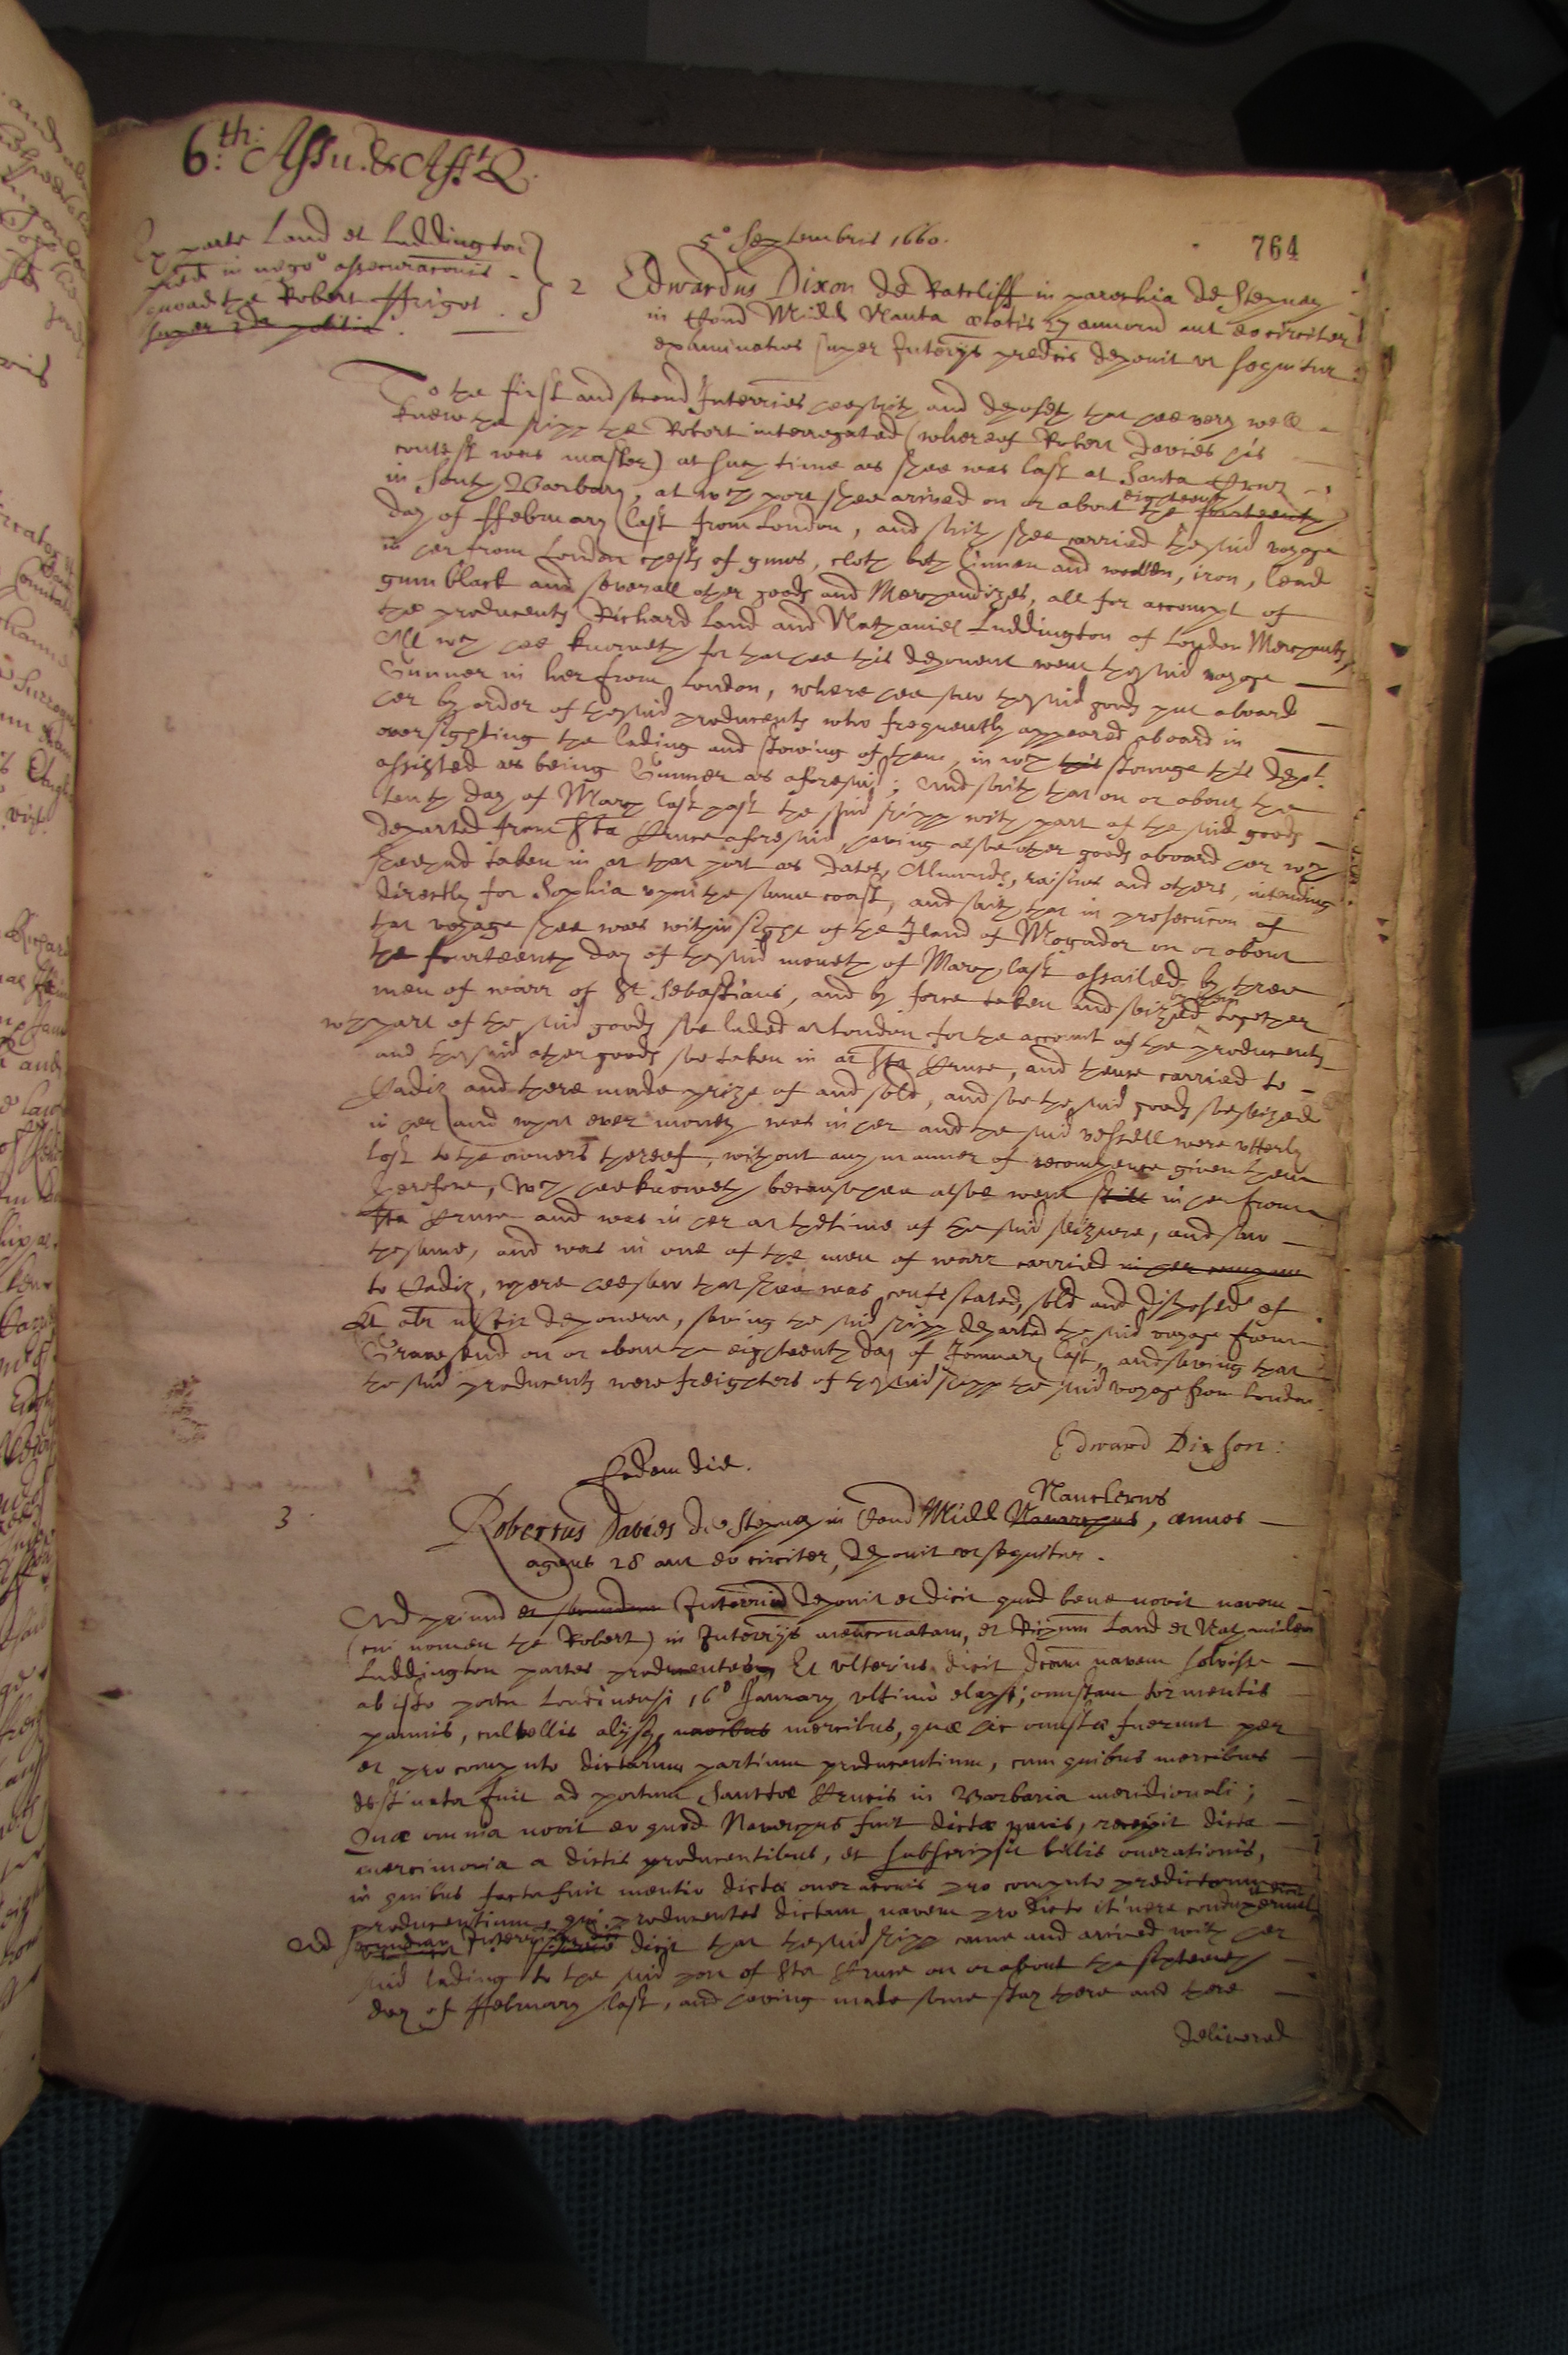 6:th: Assu. & Asst Q.
764
Ex parte Land et Luddington
in nego° assecuraconis
the Robert ffrigot
super 2da
5° Septembris 1660.
2 Edwardus Dixon de Ratcliff in parochia de Stepney
in Com Midd Nauta ætatis 27 annorum aut eo circiter
examinatus super Interijs predcis deponit ut sequitur
To the first and second Interries hee saith and deposeth that hee very well
knew the shipp the Robert interrogated (whereof Robert Davies his
contest was master) at such time as shee was last at Santa Cruz
in South Barbary, at wch port shee arived on or about the fourteenth eighteenth
day of ffebruary last from London, and saith shee carried the said voyage
in her from London chests of gunes, cloth both linnen and wollen, iron, lead
gum black and severall other goods and Merchandizes, all for accompt of
the producents Richard Land and Nathaniel Luddington of London Merchants,
All wch hee knoweth for that hee this deponent went the said voyage
Gunner in her from London, where hee saw the said goods put aboard
her by order of the said producents who frequently appeared aboard in
oversighting the lading and stowing of them, in wch this stowage this dept
assisted as being Gunner as aforesaid; And saith that on or about the
tenth day of March last past the said shipp with part of the said goods
departed from Sta Cruse aforesaid, having alsoe other goods aboard her wch
shee had taken in at that port as dates, Almonds, raisins and others, intending
directly for Sophia upon the same coast, and saith that in prosecucon of
that voyage shee was within sight of the Iland of Mogador on or about
the fourteenth day of the said moneth of March last assailed by three
men of warr of St Sebastians, and by force taken and seized together
wth part of the said goods soe laded at London for the accompt of the producents
and the said other goods soe taken in at Sta Cruse, and thence carried to
Cadiz and there made prize of and sold, and soe the said goods soe seized
in her (and what ever money was in her and the said vessell were utterly
lost to the owners thereof, without any manner of recompence given them
therefore, wch hee knoweth because hee alsoe went still in her from
Sta Cruse and was in her at the time of the said seizure, and saw
the same, and was in one of the men of warr carried in her company
to Cadiz, where hee saw that shee was confiscated, sold and disposed of
Et alr nescit deponere, saving the said shipp departed the said voyage from
Gravesend on or about the eighteenth day of January last, and saving that
the said producents were freighters of the said shipp the said voyage from London
Edward Dixson:
Eodem die.
3 Robertus Davies de Stepney in Com Midd Navarchus Nauclerus, annos
agens 28 aut eo circiter, deponit ut sequitur.
Ad primum et secundum Interrium deponit et dicit quod bene novit navem
(cui nomen the Robert) in Interrijs mencionatam, et Richum Land et Nathanielem
Luddington partes producentes, Et ulterius dicit dcam navem solvisse
ab isto portu Londinensi 16° January ultimò elapsi, onustam tormentis
pannis, cultellis alijsq navibus mercibus, quæ hic onustæ fuerunt per
et pro computo dictarum partium producentium, cum quibus mercibus
destinata fuit ad portum Sanctæ Crucis in Barbaria meridionali;
Quæ omnia novit eo quod Navarchus fuit dictæ navis, recepit dicta
mercimonia a dictis producentibus, et subscripsit billis onerationis,
in quibus facta fuit mentio dictæ oneraconis pro computo predictorum
producentium, qui producentes dictam navem pro dicto itinere conduxerunt
Ad secundum Interrium dicit that the said shipp came and arived with her
said lading to the said port of Sta Cruse on or about the sixteenth
day of ffebruary last, and having made some stay there and there
delivered